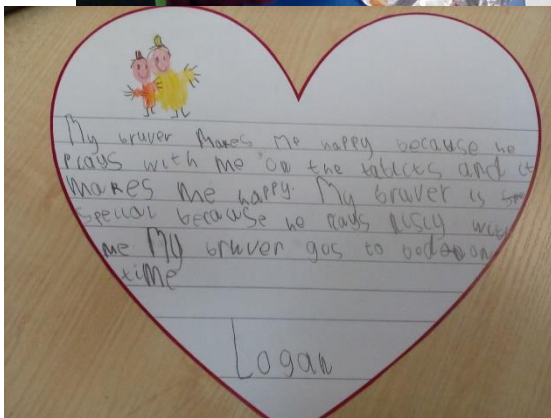 My bruver makes me happy because he
prays with me on the tablicts and it
makes me happy. My bruver is
special because he pays nisly with
me My bruver gos to bed on
time
Logan